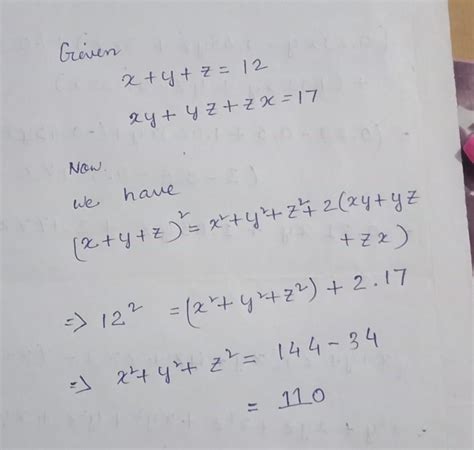 Given
x+y+z=12
xy+yz+zx=17
Now
we have
(x+y+z)²=x²+y²+z²+2(xy+yz
+zx)
=> 12² =(x²+y²+z²)+2.17
=> x²+y²+z²= 144-34
= 110